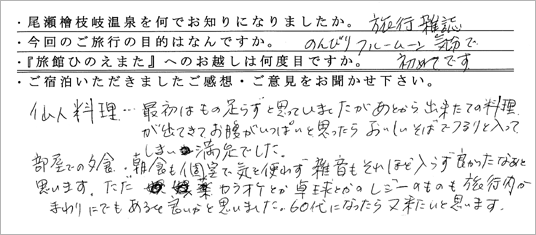 ・尾瀬檜枝岐温泉を何でお知りになりましたか。 旅行雑誌
・今回のご旅行の目的はなんですか。 のんびりフルムーン気分で
・『旅館ひのえまた』へのお越しは何度目ですか。 初めてです
・ご宿泊いただきましたご感想・ご意見をお聞かせ下さい。
仙人料理… 最初はもの足らずと思っていましたがあとから出来たての料理
が出てきてお腹がいっぱいと思ったらおいしいそばでツルリと入って
しまい満足でした。
部屋での夕食、朝食も個室で気を使わず雑音もそれほど入らず良かったなあと
思います。ただ カラオケとか卓球とかのレジャーのものも旅行内か
まわりにでもあると良いかと思いました。60代になったら又来たいと思います。